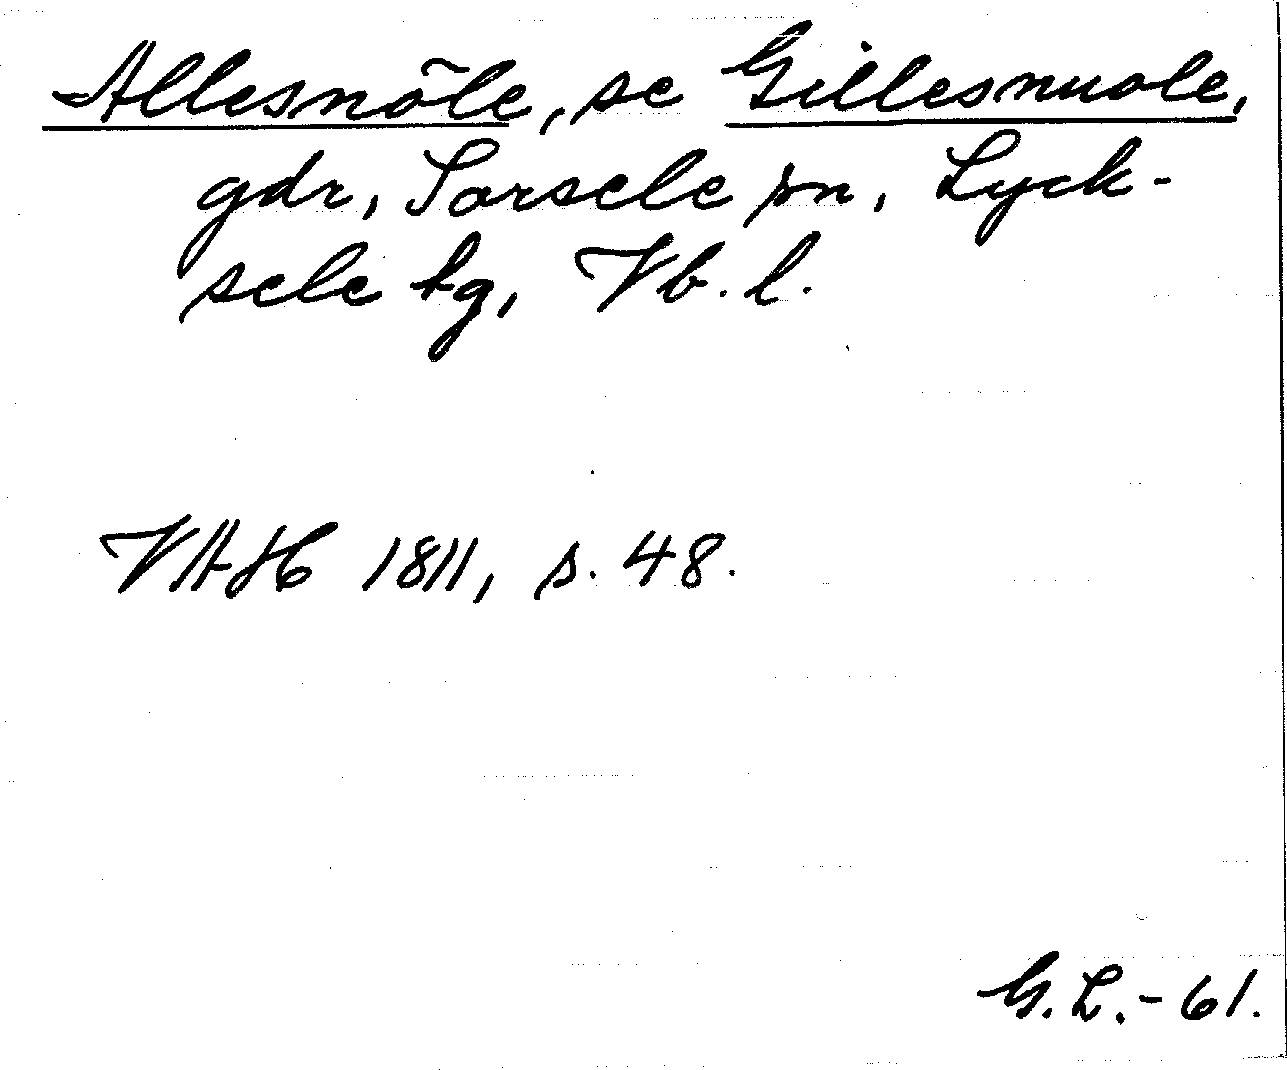 Allesnõle, se Gillesnuole,
gdr, Sorsele sn, Lyck-
sele tg, Vb. l.
VAH 1811, s. 48.
G. L. - 61.